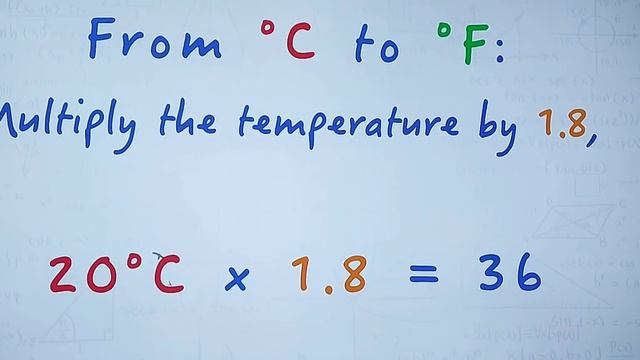 From °C to °F:
Multiply the temperature by 1.8,
20°C x 1.8 = 36